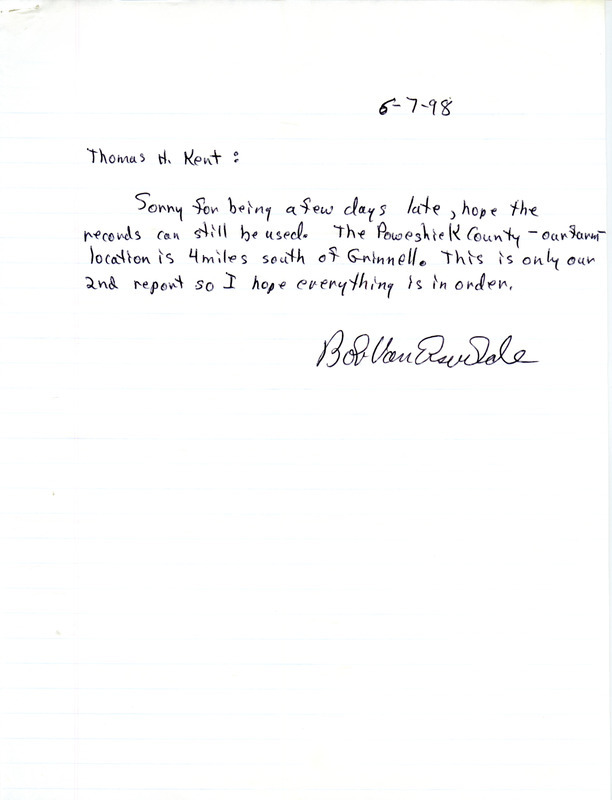 6-7-98
Thomas H. Kent :
Sorry for being a few days late, hope the
records can still be used. The Poweshiek County - our farm
location is 4 miles south of Grinnell. This is only our
2nd report so I hope everything is in order.
Bob Van